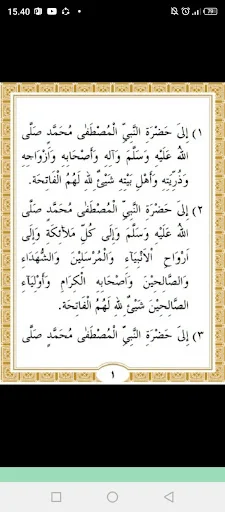 15.40
79
١) إِلَى حَضْرَةِ النَّبِيِّ الْمُصْطَفَى مُحَمَّدٍ صَلَّى
اللهُ عَلَيْهِ وَسَلَّمَ وَآلِهِ وَأَصْحَابِهِ وَأَزْوَاجِهِ
وَذُرِّيَّتِهِ وَأَهْلِ بَيْتِهِ شَيْئٌ لِلهِ لَهُمُ الْفَاتِحَةَ.
٢) إِلَى حَضْرَةِ النَّبِيِّ الْمُصْطَفَى مُحَمَّدٍ صَلَّى
اللهُ عَلَيْهِ وَسَلَّمَ وَإِلَى كُلِّ مَلَائِكَةِ وَإِلَى
أَرْوَاحِ الْأَنْبِيَآءِ وَالْمُرْسَلِيْنَ وَالشُّهَدَآءِ
وَالصَّالِحِيْنَ وَأَصْحَابِهِ الْكِرَامِ وَأَوْلِيَآءِ
الصَّالِحِيْنَ شَيْئٌ لِلهِ لَهُمُ الْفَاتِحَةَ.
٣) إِلَى حَضْرَةِ النَّبِيِّ الْمُصْطَفَى مُحَمَّدٍ صَلَّى
١